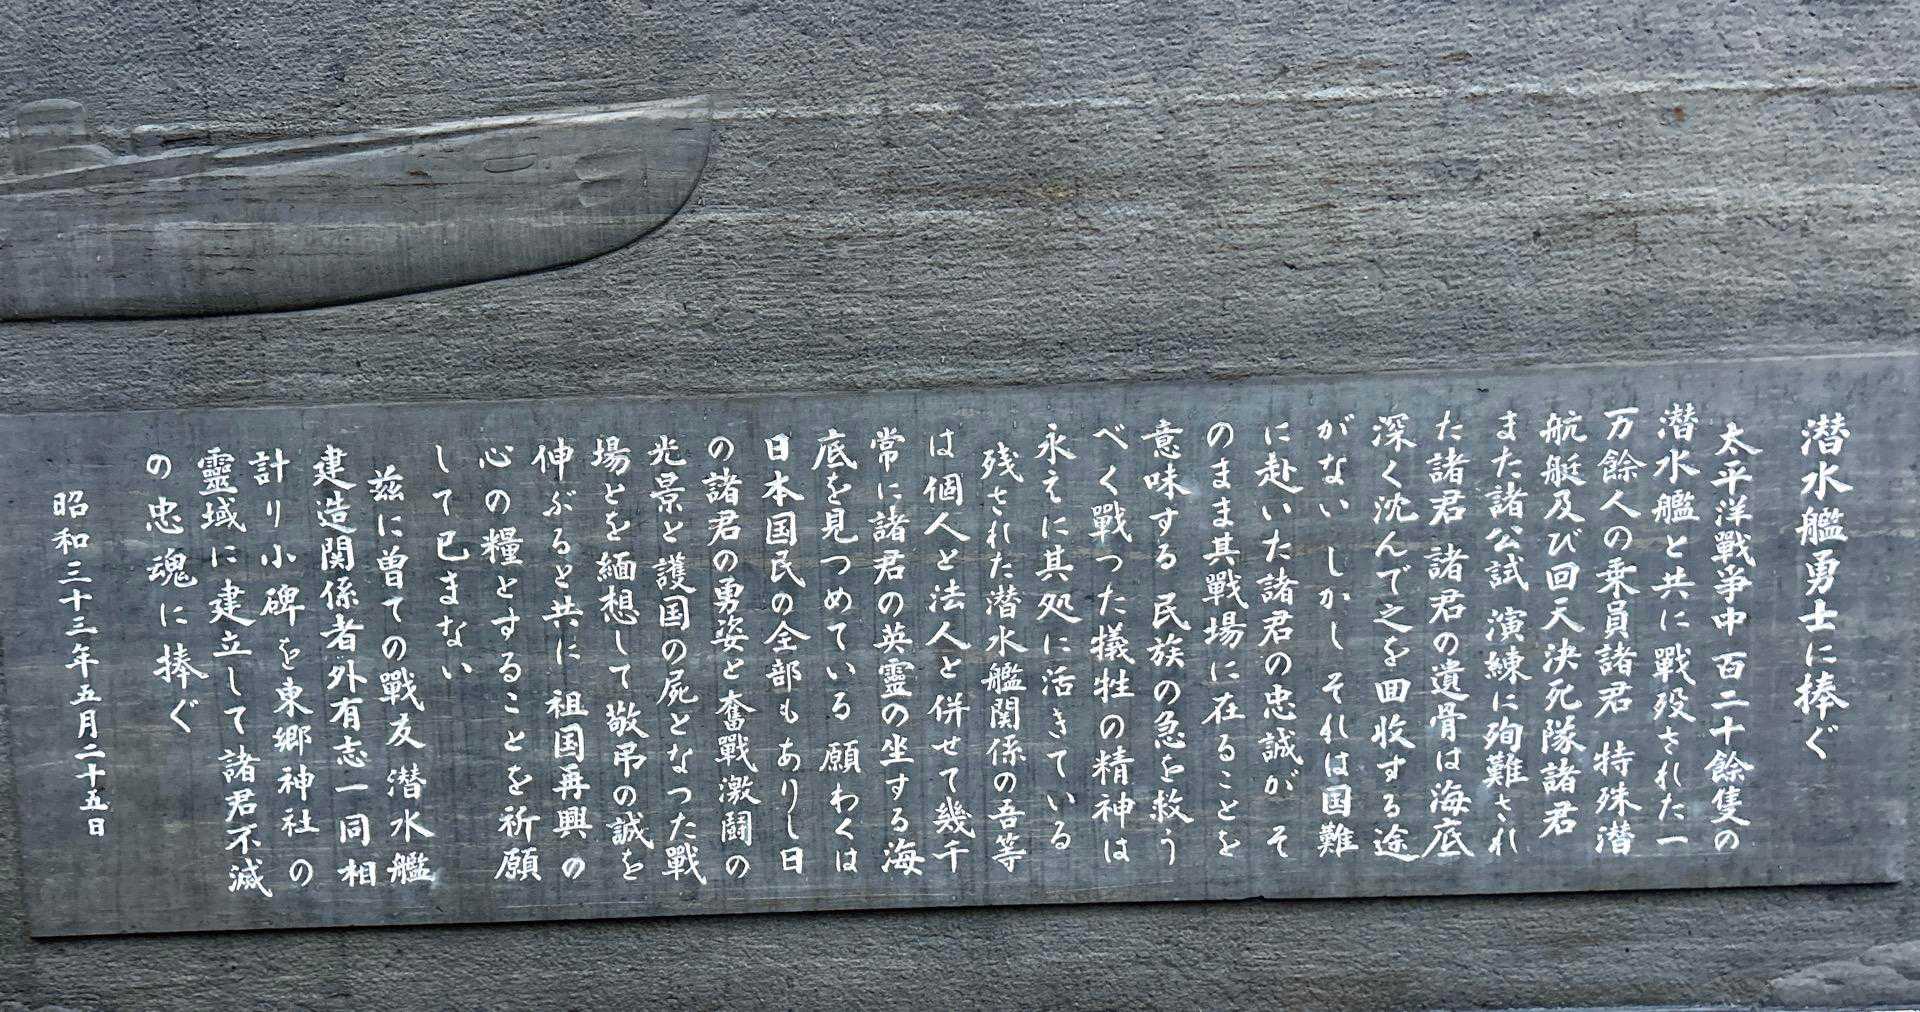 潜水艦勇士に捧ぐ
太平洋戰争中 百二十餘隻の
潜水艦と共に戰歿された一
万餘人の乗員諸君 特殊潜
航艇及び回天決死隊諸君
また諸公試 演練に殉難され
た諸君 諸君の遺骨は海底
深く沈んで之を回收する途
がない しかし それは国難
に赴いた諸君の忠誠が そ
のまま其戰場に在ることを
意味する 民族の急を救う
べく戰つた犠牲の精神は
永えに其処に活きている
残された潜水艦関係の吾等
は個人と法人と併せて幾千
常に諸君の英靈の坐する海
底を見つめている 願わくは
日本国民の全部も ありし日
の諸君の勇姿と奮戰激闘の
光景と護国の屍となつた戰
場とを緬想して敬弔の誠を
伸ぶると共に 祖国再興の
心の糧とすることを祈願
して已まない
茲に曽ての戰友 潜水艦
建造関係者外有志一同相
計り小碑を東郷神社の
靈域に建立して 諸君不滅
の忠魂に捧ぐ
昭和三十三年五月二十五日